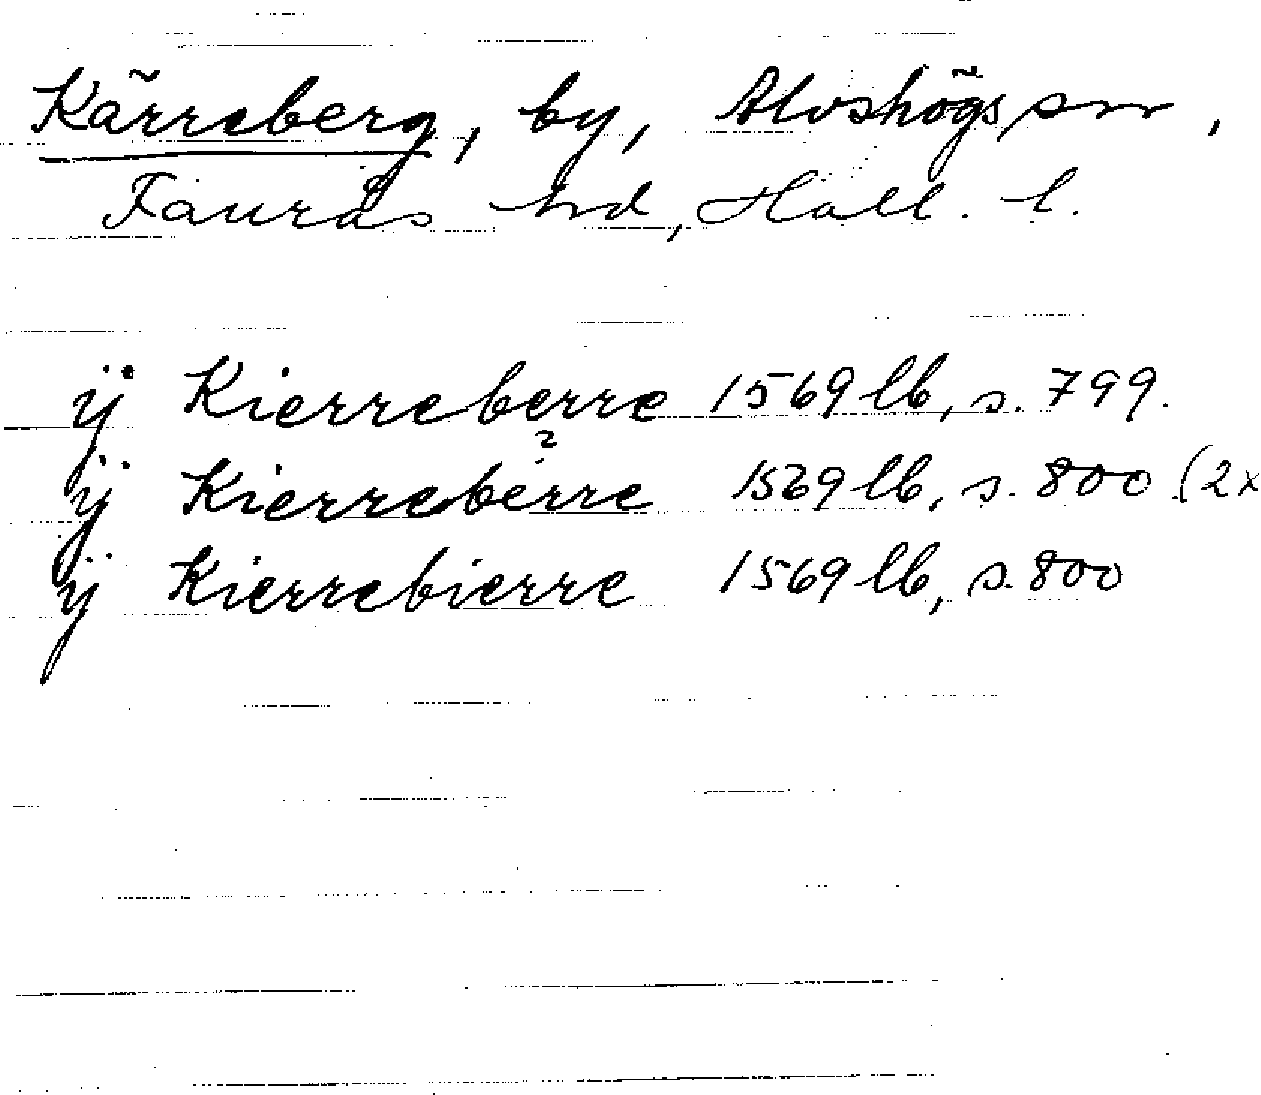 Kärreberg, by, Alvshögs sn,
Faurås hd, Hall. l.
ÿ Kierreberre 1569 lb, s. 799.
ÿ Kierreberre 1569 lb, s. 800 (2x
ÿ Kierrebierre 1569 lb, s. 800